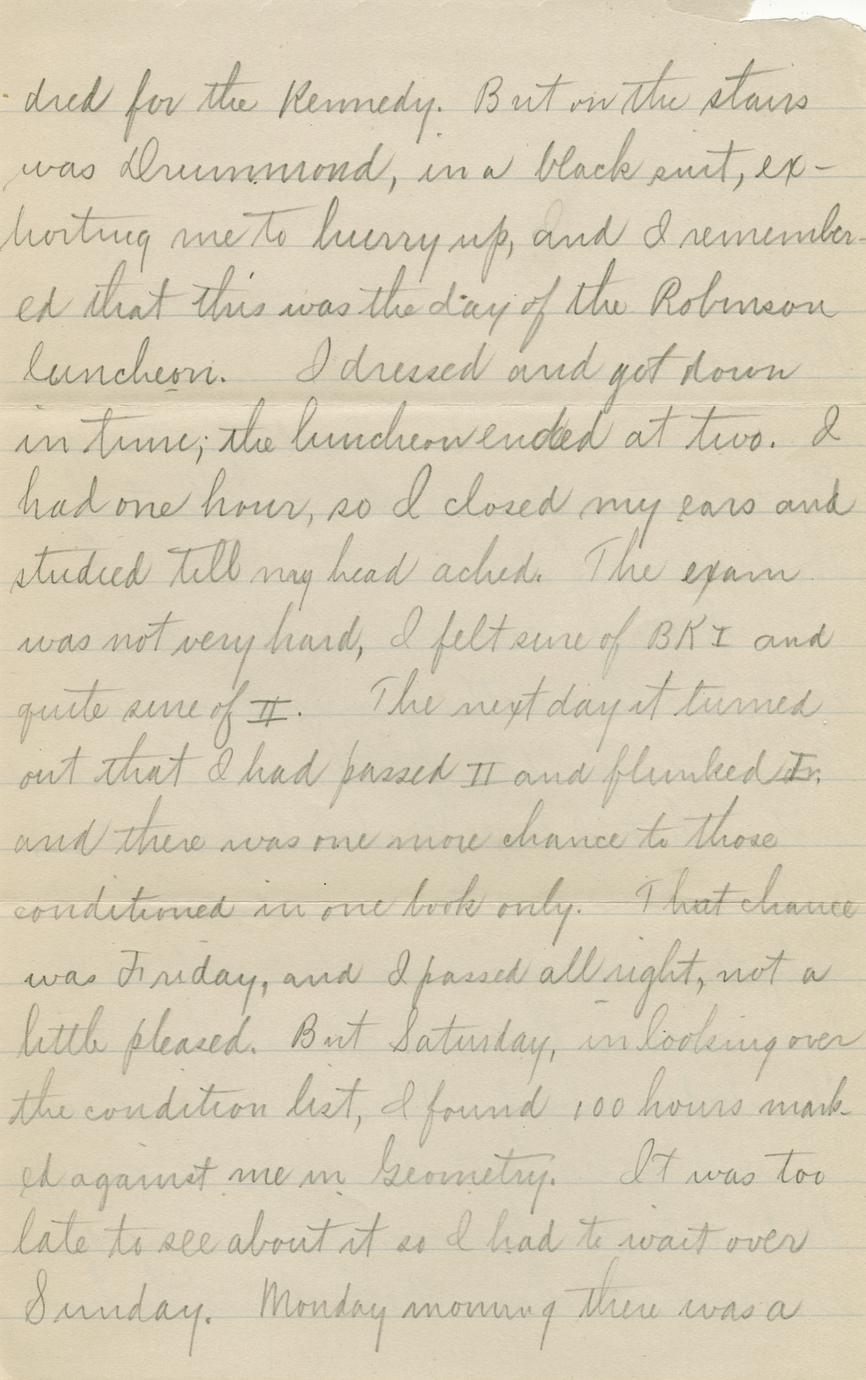 dred for the Kennedy. But on the stairs
was Drummond, in a black suit, ex-
horting me to hurry up, and I remember-
ed that this was the day of the Robinson
luncheon. I dressed and got down
in time; the luncheon ended at two. I
had one hour, so I closed my ears and
studied till my head ached. The exam
was not very hard, I felt sure of BK I and
quite sure of II. The next day it turned
out that I had passed II and flunked I.
and there was one more chance to those
conditioned in one book only. That chance
was Friday, and I passed all right, not a
little pleased. But Saturday, in looking over
the condition list, I found 100 hours mark-
ed against me in Geometry. It was too
late to see about it so I had to wait over
Sunday. Monday morning there was a